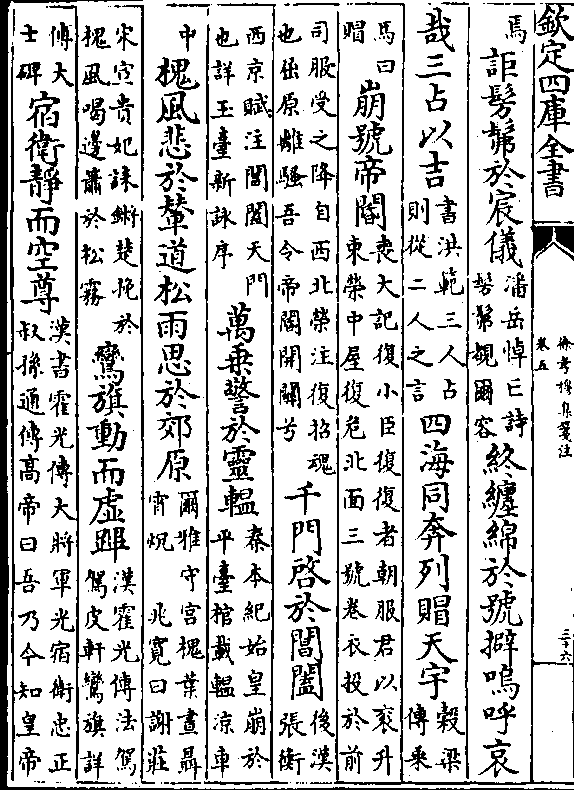 欽定四庫全書
徐孝穆集箋注
卷五
三十六
馬
詎髣髴於宸儀
潘岳悼亡詩
髣髴覩爾容
終纏綿於號擗嗚呼哀
哉三占以吉
書洪範三人占
則從二人之言
四海同奔列賵天宇
穀梁
傳乘
馬曰
賵
崩號帝閽
喪大記復小臣復復者朝服君以衮升
東榮中屋復危北面三號卷衣投於前
司服受之降自西北榮注復招魂
也屈原離騷吾令帝閽開關兮
千門啓於閶闔
後漢
張衡
西京賦注閶闔天門
也詳玉臺新詠序
萬乗警於靈輼
秦本紀始皇崩於
平臺棺載輼涼車
中
槐風悲於輦道松雨思於郊原
爾雅守宫槐葉晝聶
宵炕
兆寛曰謝莊
宋宣貴妃誄鏘楚挽於
槐風喝邊簫於松霧
鸞旗動而虛蹕
漢霍光傳法駕
駕皮軒鸞旗詳
傅大
士碑
宿衛靜而空尊
漢書霍光傳大將軍光宿衛忠正
叔孫通傳高帝曰吾乃今知皇帝